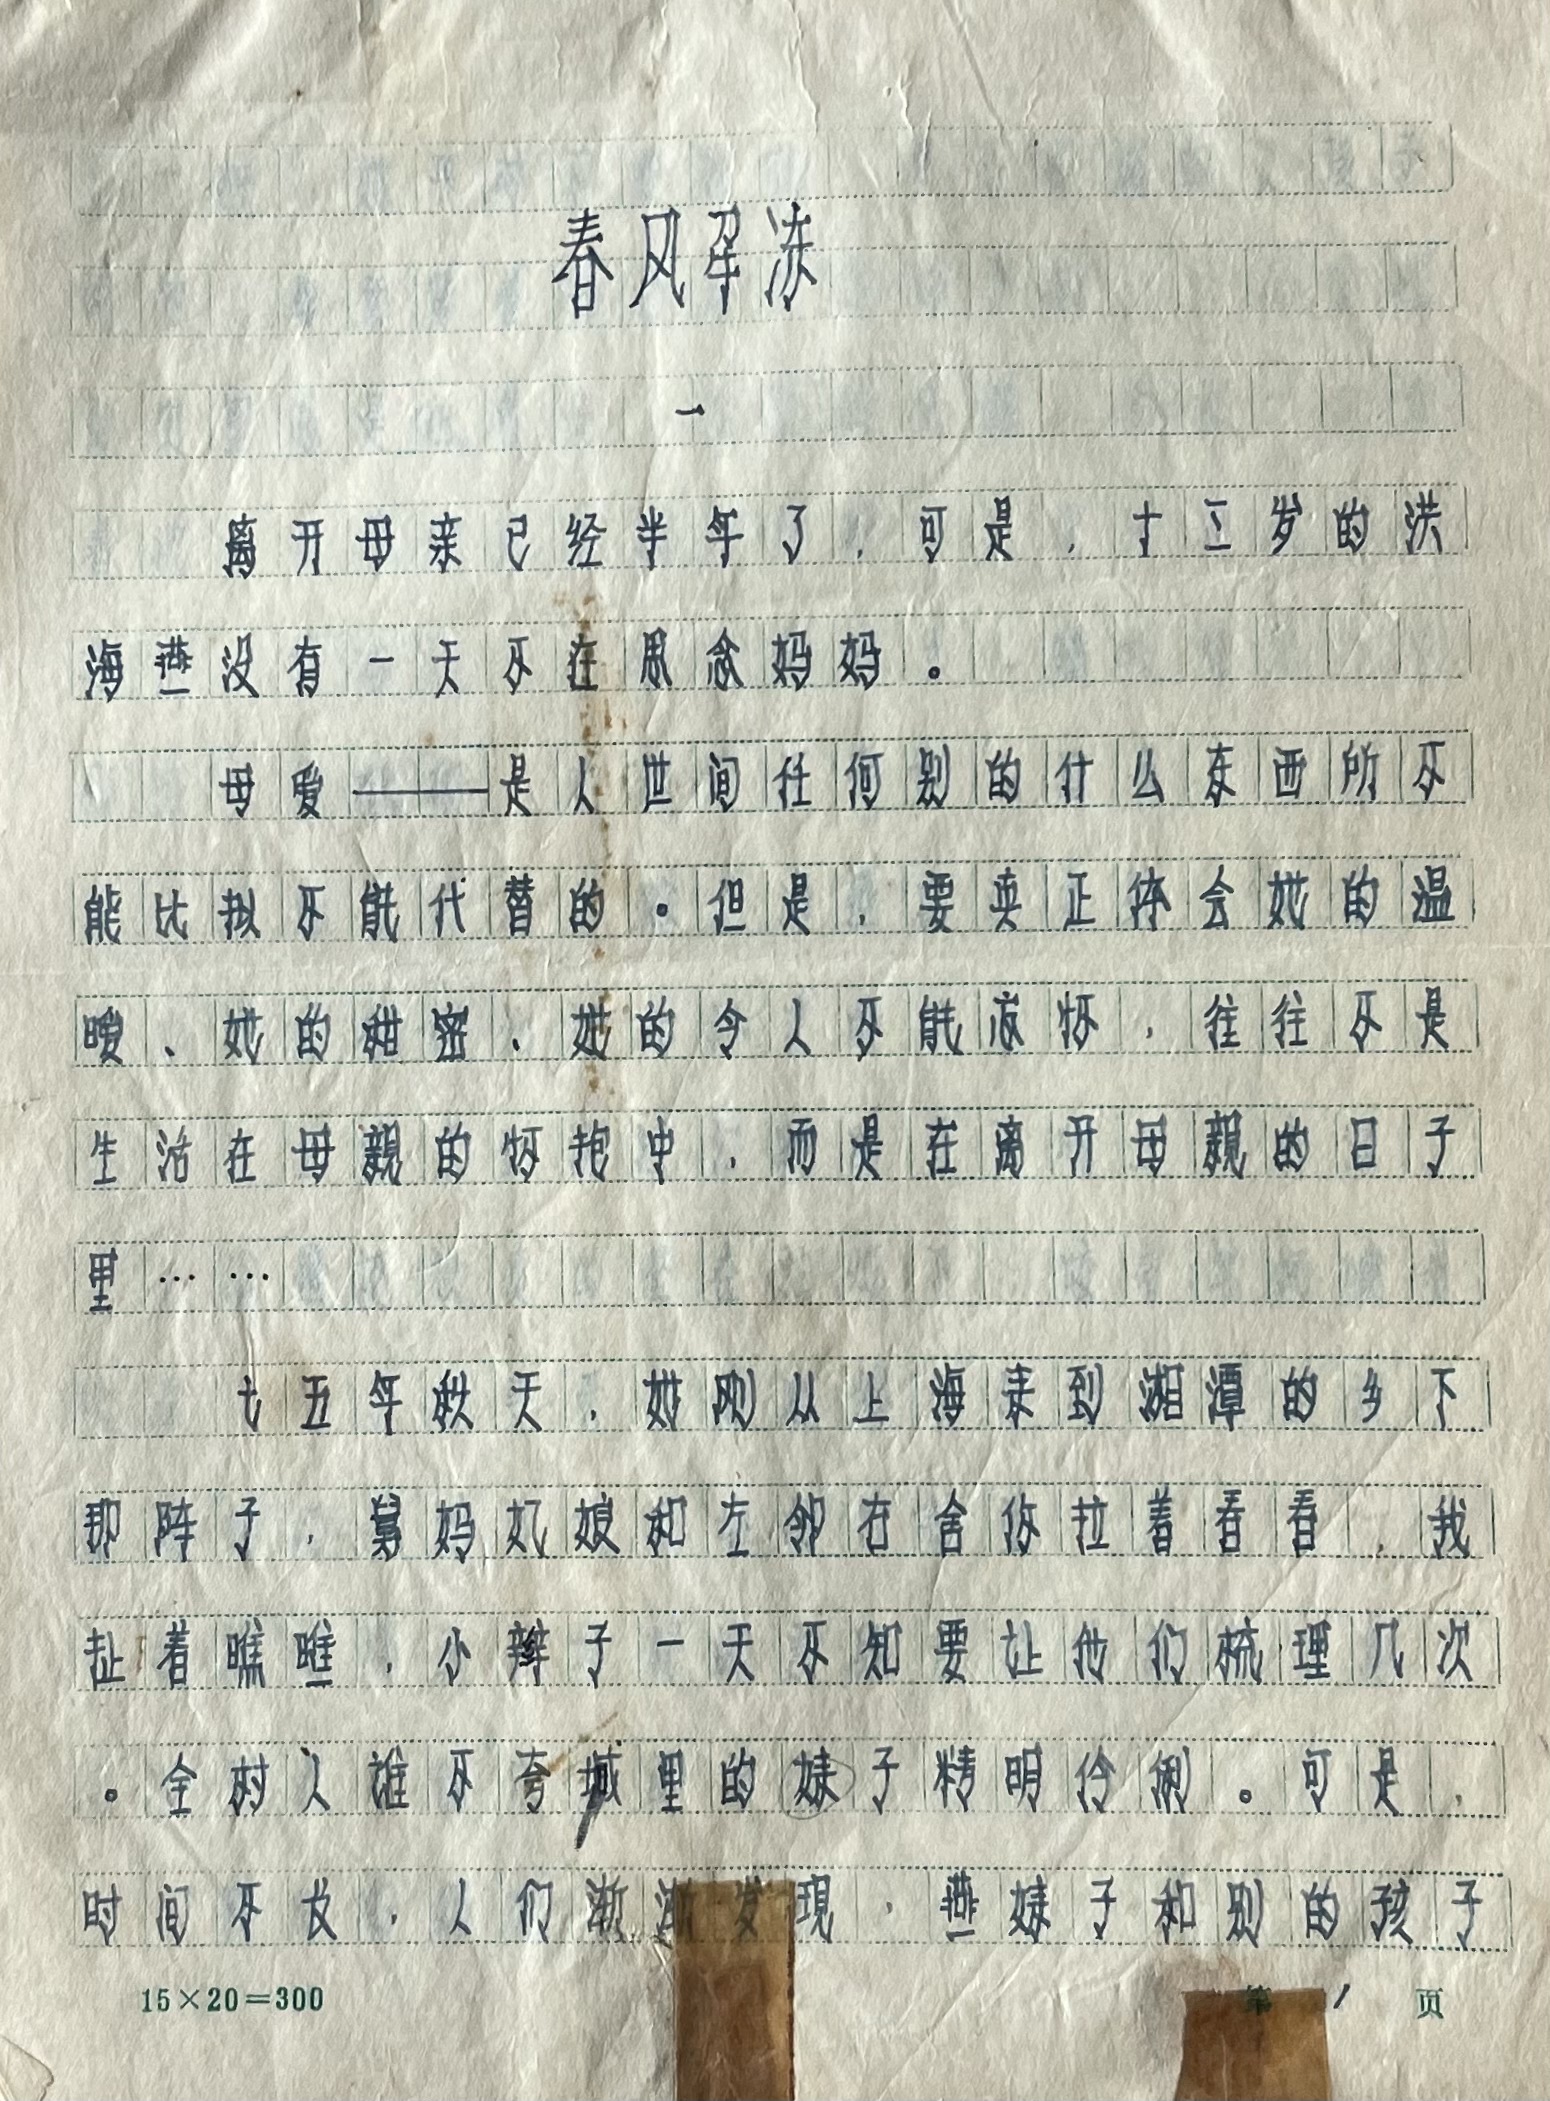 春风解冻
一
离开母亲已经半年了，可是，十三岁的洪
海燕没有一天不在思念妈妈。
母爱——是人世间任何别的什么东西所不
能比拟不能代替的。但是，要真正体会她的温
暖、她的甜密、她的令人不能忘怀，往往不是
生活在母親的怀抱中，而是在离开母親的日子
里……
七五年秋天，她刚从上海来到湘潭的乡下
那阵子，舅妈姨娘和左邻右舍你拉着看看，我
扯着瞧瞧，小辫子一天不知要让他们梳理几次
。全村人谁不夸城里的妹子精明伶俐。可是，
时间不长，人们渐渐发现，燕妹子和别的孩子
15×20＝300 第 1 页